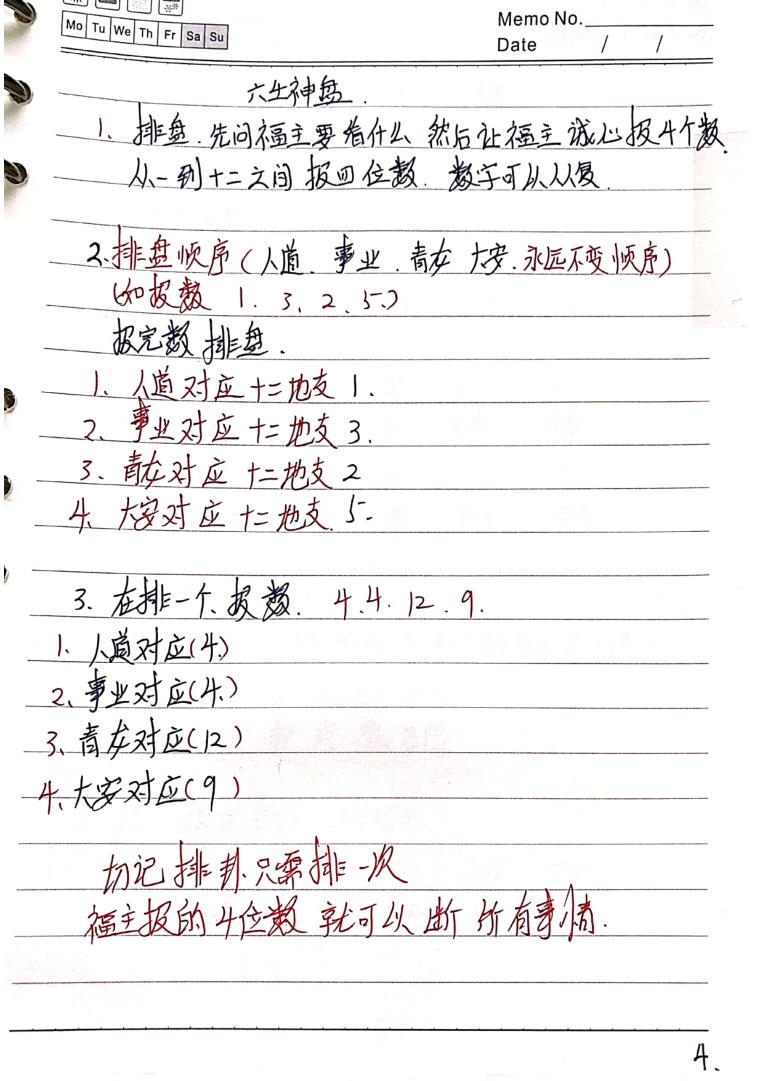 Mo Tu We Th Fr Sa Su
Memo No.
Date / /
六壬神盘.
1. 排盘.先问福主要看什么 然后让福主诚心报4个数.
从一到十二之间 报四位数. 数字可以从复.
2.排盘顺序(人道. 事业. 青龙 大安.永远不变顺序)
(如报数 1. 3、2. 5.)
报完数 排盘.
1. 人道对应十二地支1.
2. 事业对应十二地支3.
3. 青龙对应十二地支2
4. 大安对应十二地支.5.
3. 在排一个.报数. 4.4.12.9.
1. 人道对应(4.)
2、事业对应(4.)
3、青龙对应(12)
4、大安对应(9)
切记排卦只需排一次
福主报的4位数 就可以断所有事情.
4.